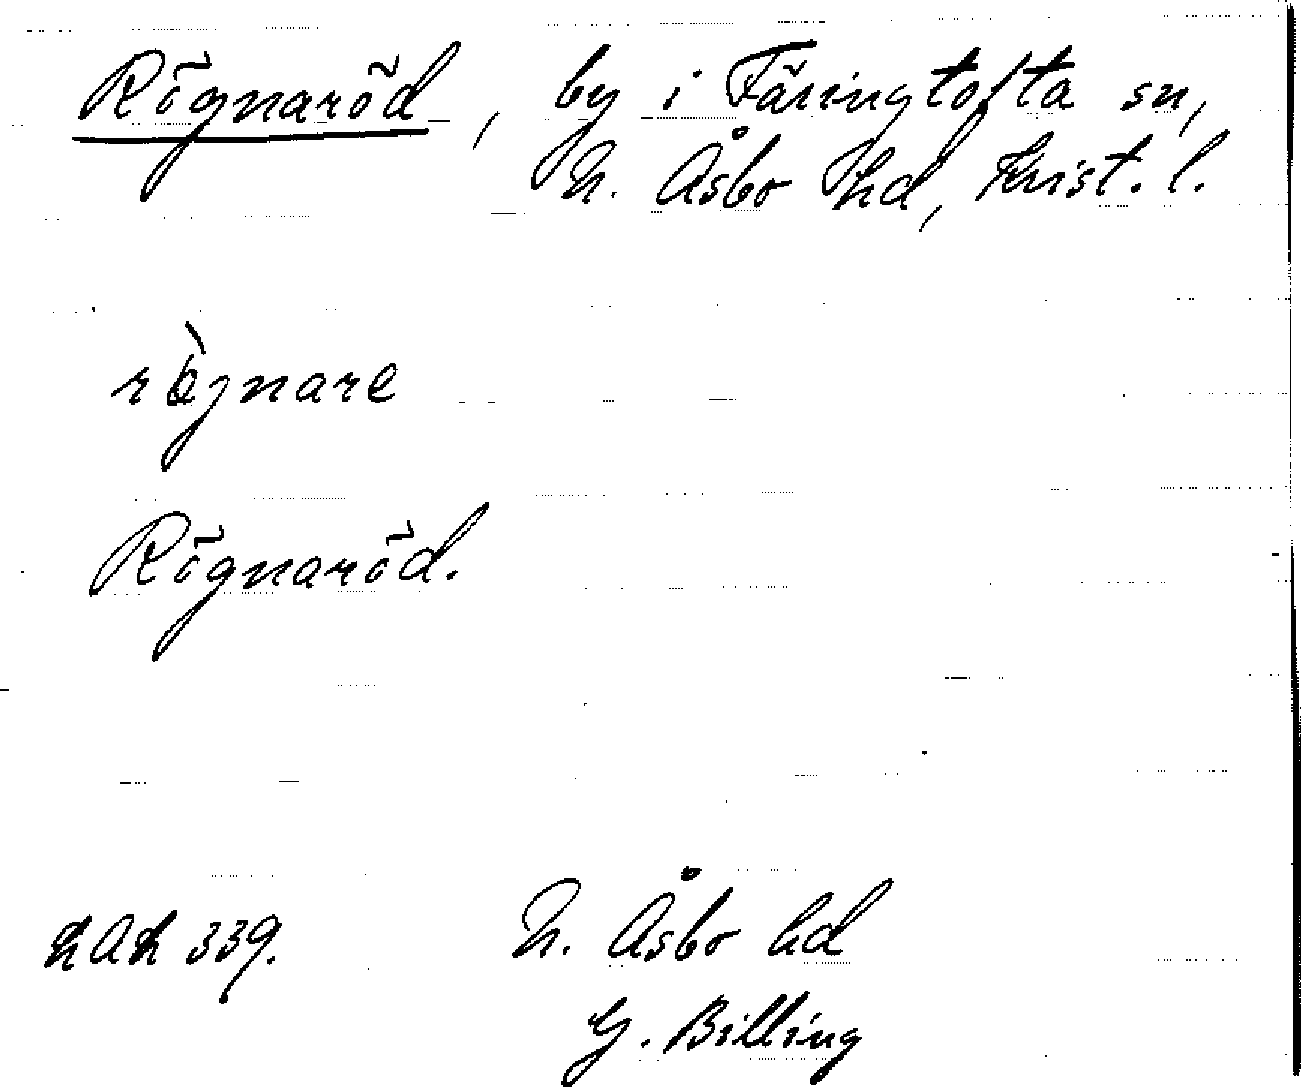 Rögnaröd, by i Färingtofta sn,
N. Åsbo hd, Krist. l.
rögnare
Rögnaröd.
LAL 339. N. Åsbo hd
G. Billing